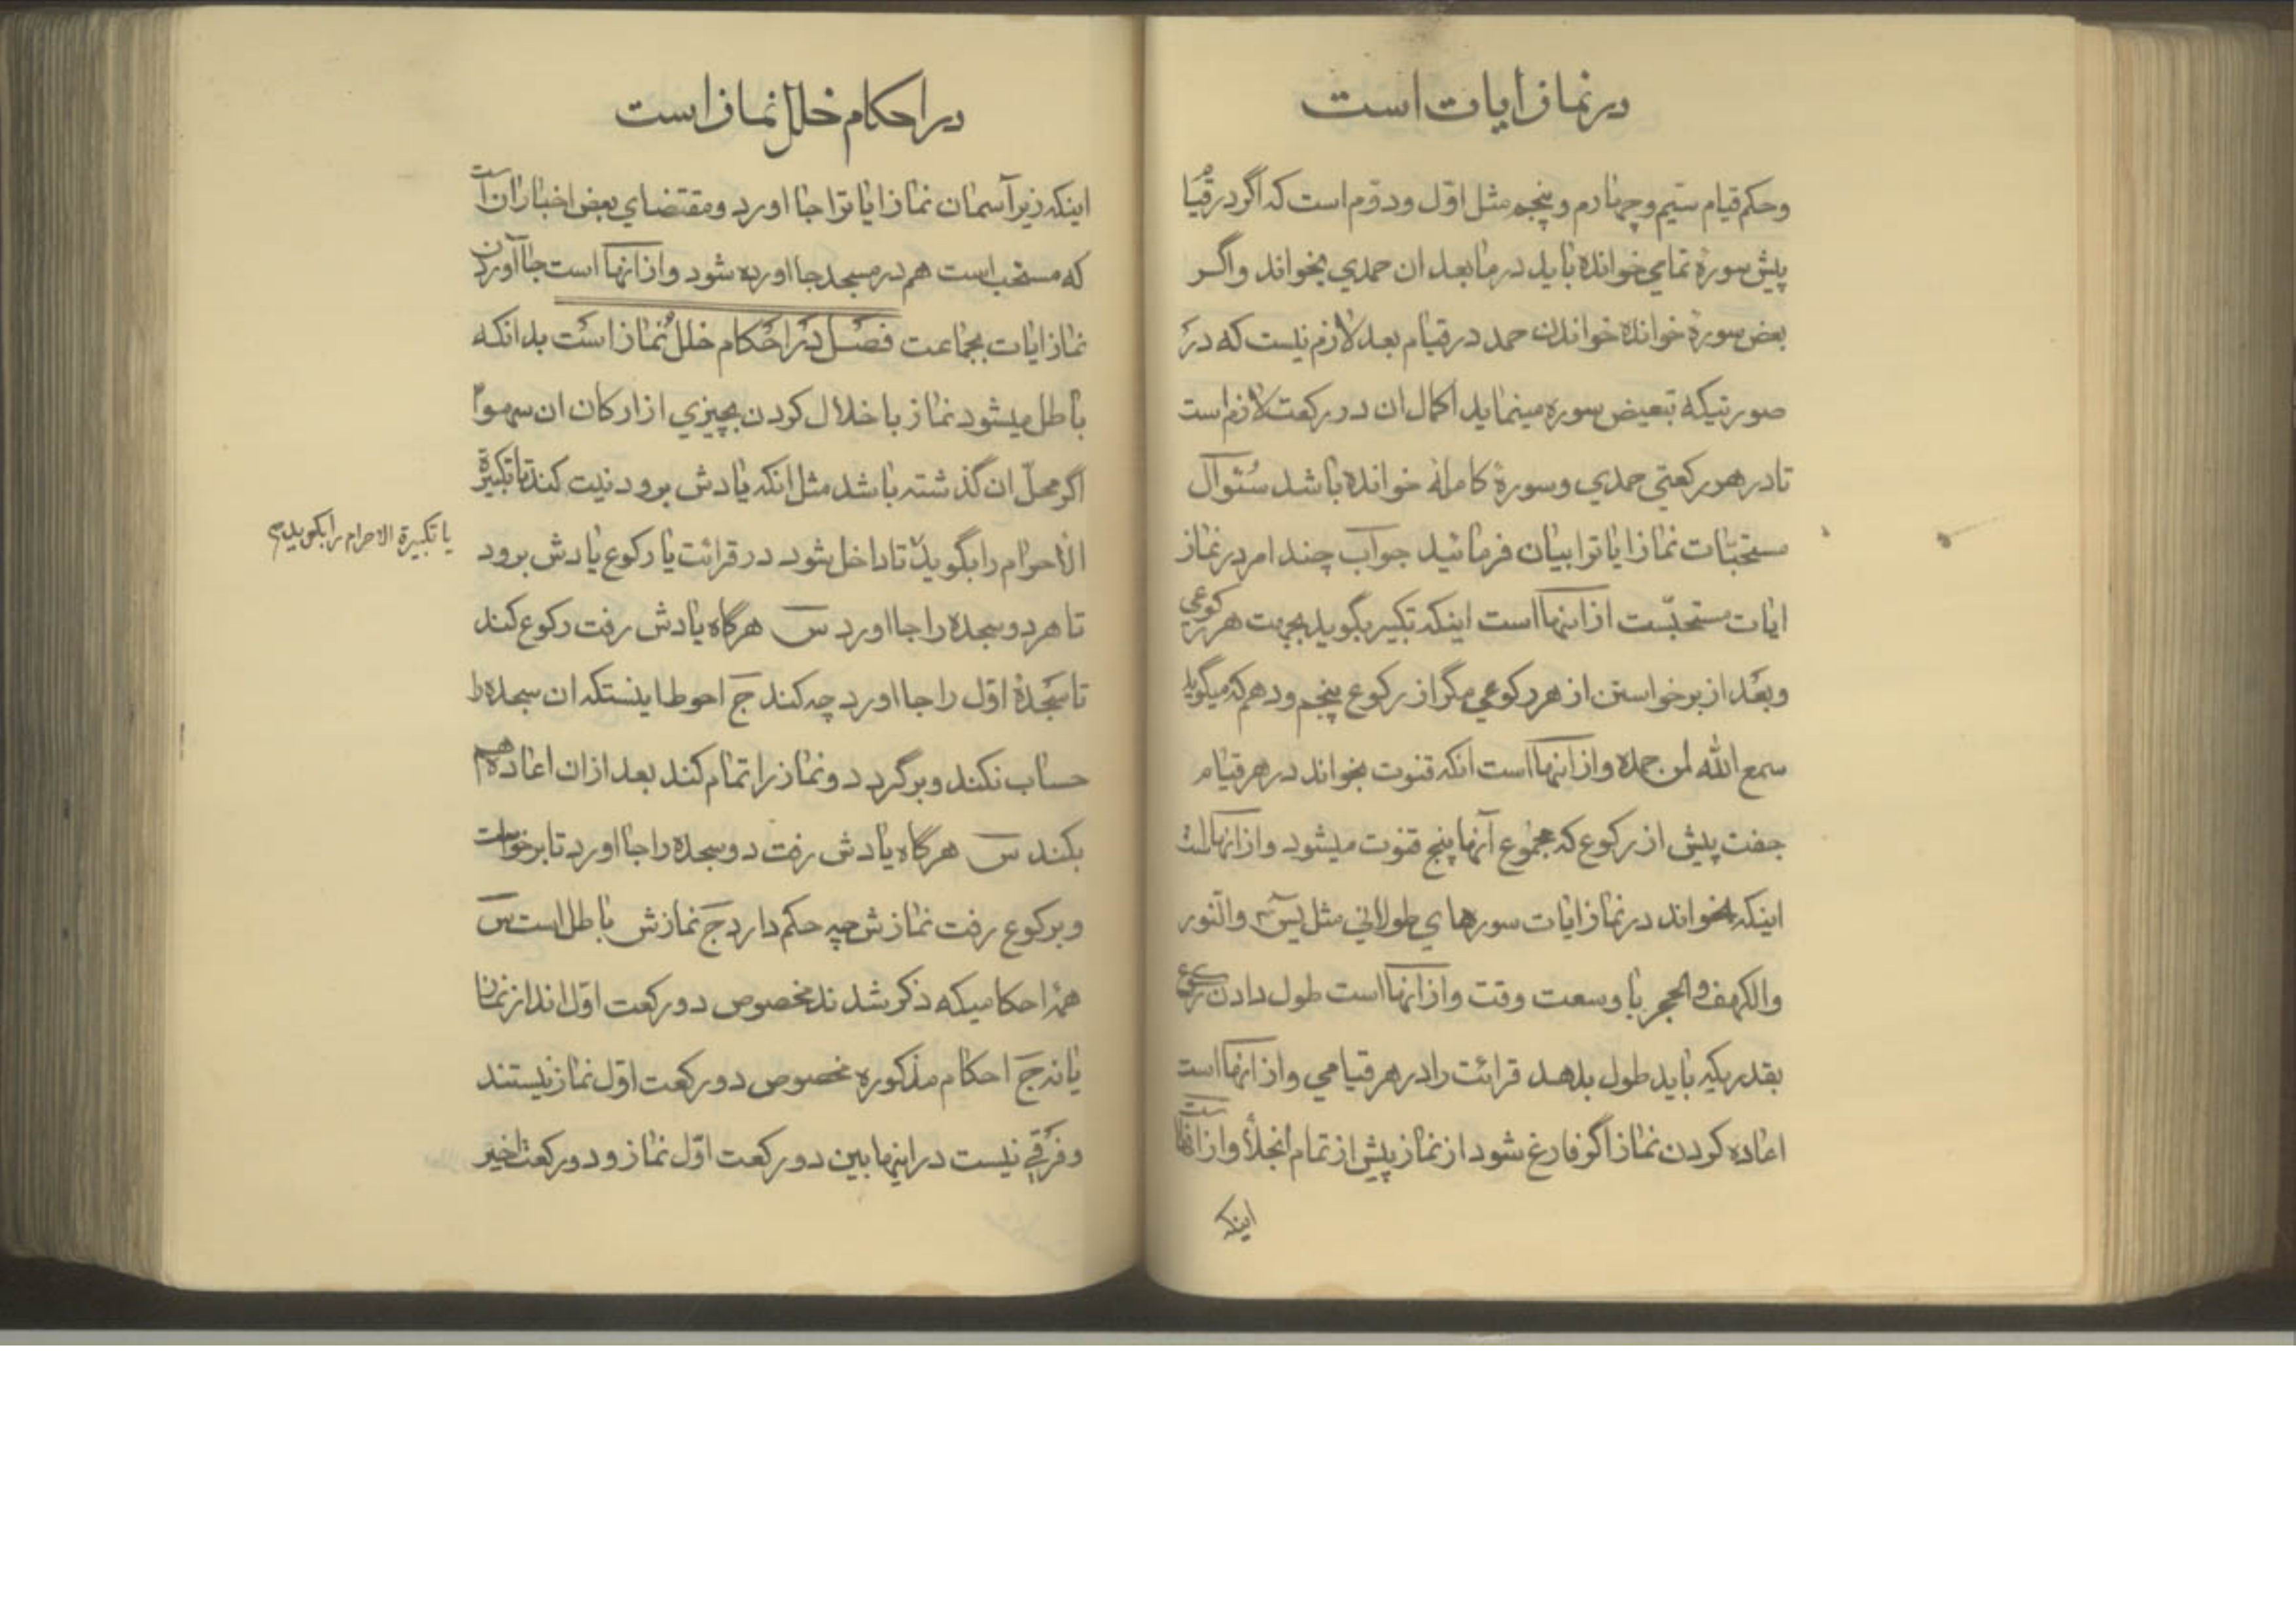 در نماز ایات است
وحکم قیام سیّم وچهارم وپنجم مثل اوّل ودوّم است که اگر در قیام
پیش سورهٔ تمامی خوانده باید در مابعد ان حمدی بخواند واگر
بعض سورهٔ خوانده خواندن حمد در قیام بعد لازم نیست که در
صورتیکه تبعیض سوره مینماید اکمال ان در رکعت لازم است
تا در هر رکعتی حمدی وسورهٔ کامله خوانده باشد سئوال
مستحبّات نماز ایاترا بیان فرمائید جواب چند امر در نماز
ایات مستحبّست از اینها است اینکه تکبیر بگوید بجهت هر رکوعی
وبعد از برخواستن از هر رکوعی مگر از رکوع پنجم ودهم که میگوید
سمع الله لمن حمده واز اینها است انکه قنوت بخواند در هر قیام
جفت پیش از رکوع که مجموع آنها پنج قنوت میشود واز انها است
اینکه بخواند در نماز ایات سورهای طولانی مثل یس والنور
والکهف والحجر با وسعت وقت واز انها است طول دادن رکوع
بقدریکه باید طول بدهد قرائت را در هر قیامی واز انها است
اعاده کردن نماز اگر فارغ شود از نماز پیش از تمام انجلأ واز انها است
اینکه
در احکام خلل نماز است
اینکه زیر آسمان نماز ایاترا جا اورد ومقتضای بعض اخبار ان است
که مستحب است هم در مسجد جا اورده شود واز انها است جا آوردن
نماز ایات بجماعت فصل در احکام خلل نماز است بدانکه
باطل میشود نماز باخلال کردن بچیزی از ارکان ان سهوا
اگر محلّ ان گذشته باشد مثل انکه یادش برود نیت کند تا تکبیرة
الاحرام را بگوید تا داخل شود در قرائت یا رکوع یادش برود
یا تکبیرة الاحرام را بگوید
تا هر دو سجده را جا اورد س هرگاه یادش رفت رکوع کند
تا سجدهٔ اوّل را جا اورد چه کند ج احوط اینستکه ان سجده را
حساب نکند وبرگردد ونماز را تمام کند بعد از ان اعاده هم
بکند س هرگاه یادش رفت دو سجده را جا اورد تا برخواست
وبرکوع رفت نمازش چه حکم دارد ج نمازش باطل است س
همهٔ احکامیکه ذکر شدند مخصوص دو رکعت اوّل اند از نمازن
یا نه ج احکام مذکوره مخصوص دو رکعت اوّل نماز نیستند
وفرقی نیست در اینها بین دو رکعت اوّل نماز ودو رکعت اخیر